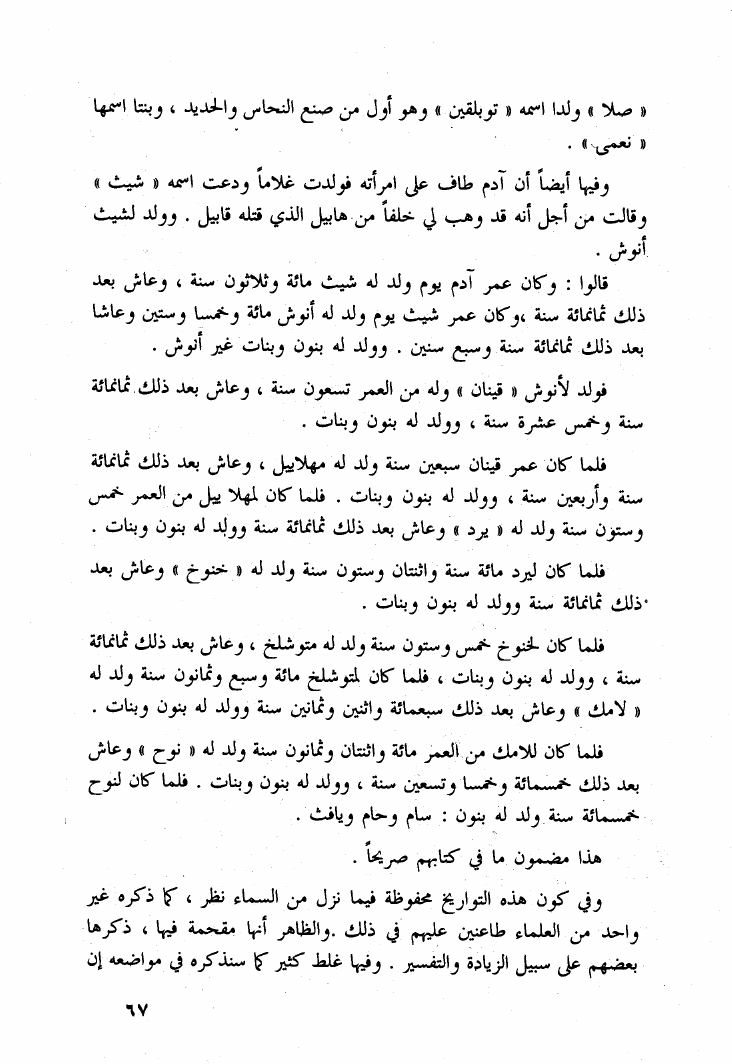 « صلا » ولدا اسمه « توبلقين » وهو أول من صنع النحاس والحديد ، وبنتا اسمها
« نعمى » .
وفيها أيضاً أن آدم طاف على امرأته فولدت غلاماً ودعت اسمه « شيث »
وقالت من أجل أنه قد وهب لي خلفاً من هابيل الذي قتله قابيل . وولد لشيث
أنوش .
قالوا : وكان عمر آدم يوم ولد له شيث مائة وثلاثون سنة ، وعاش بعد
ذلك ثمانمائة سنة ،وكان عمر شيث يوم ولد له أنوش مائة وخمسا وستين وعاشا
بعد ذلك ثمانمائة سنة وسبع سنين . وولد له بنون وبنات غير أنوش .
فولد لأنوش « قينان » وله من العمر تسعون سنة ، وعاش بعد ذلك ثمانمائة
سنة وخمس عشرة سنة ، وولد له بنون وبنات .
فلما كان عمر قينان سبعين سنة ولد له مهلاييل ، وعاش بعد ذلك ثمانمائة
سنة وأربعين سنة ، وولد له بنون وبنات . فلما كان لمهلا ييل من العمر خمس
وستون سنة ولد له « يرد » وعاش بعد ذلك ثمانمائة سنة وولد له بنون وبنات .
فلما كان ليرد مائة سنة واثنتان وستون سنة ولد له « خنوخ » وعاش بعد
ذلك ثمانمائة سنة وولد له بنون وبنات .
فلما كان لخنوخ خمس وستون سنة ولد له متوشلخ ، وعاش بعد ذلك ثمانمائة
سنة ، وولد له بنون وبنات ، فلما كان لمتوشلخ مائة وسبع وثمانون سنة ولد له
« لامك » وعاش بعد ذلك سبعمائة واثنين وثمانين سنة وولد له بنون وبنات .
فلما كان للامك من العمر مائة واثنتان وثمانون سنة ولد له « نوح » وعاش
بعد ذلك خمسمائة وخمسا وتسعين سنة ، وولد له بنون وبنات . فلما كان لنوح
خمسمائة سنة ولد له بنون : سام وحام ويافث .
هذا مضمون ما في كتابهم صريحاً .
وفي كون هذه التواريخ محفوظة فيما نزل من السماء نظر ، كما ذكره غير
واحد من العلماء طاعنين عليهم في ذلك .والظاهر أنها مقحمة فيها ، ذكرها
بعضهم على سبيل الزيادة والتفسير . وفيها غلط كثير كما سنذكره في مواضعه إن
٦٧